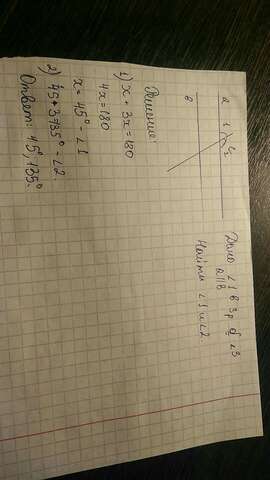 Дано ∠1 в 3 р б ∠3
a || в
Найти ∠1 и ∠2
a 1 2
3
в
Решение:
1) x + 3x = 180
4x = 180
x = 45° - ∠1
2) 45 * 3 = 135° - ∠2
Ответ: 45°, 135°.